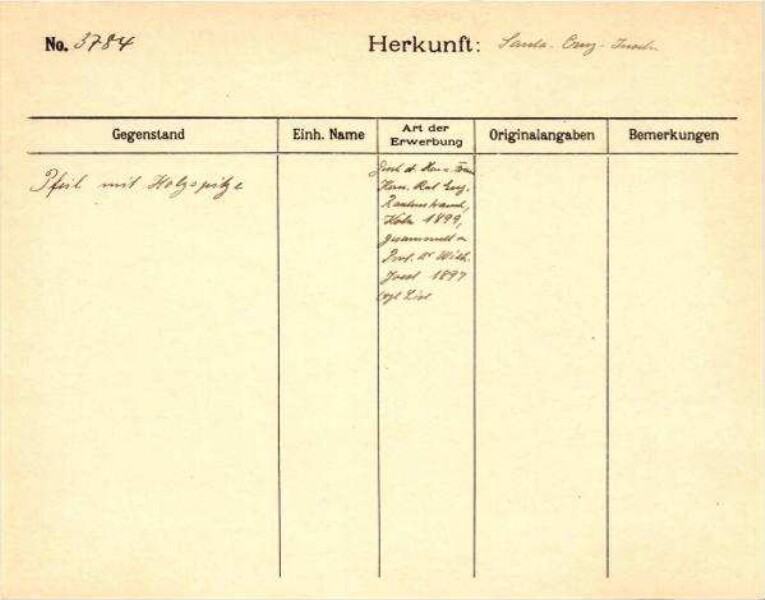 No. 3784
Herkunft: Santa-Cruz-Inseln
Gegenstand
Einh. Name
Art der
Erwerbung
Originalangaben
Bemerkungen
Pfeil mit Holzspitze
Gesch. d. Herrn u. Frau
Kom. Rat Eug.
Rautenstrauch,
Köln 1899,
gesammelt v.
Prof. Dr Wilh.
Joest 1897